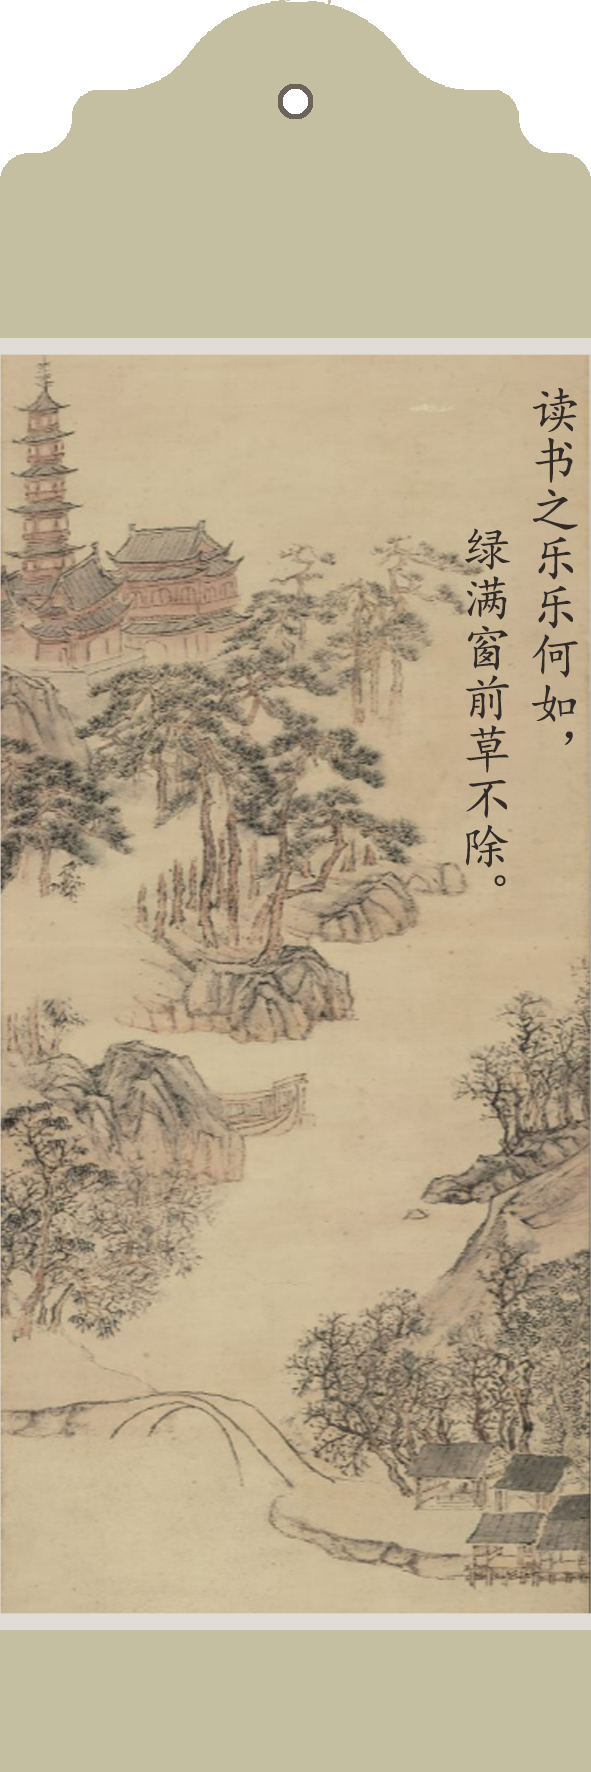 读书之乐乐何如，
绿满窗前草不除。